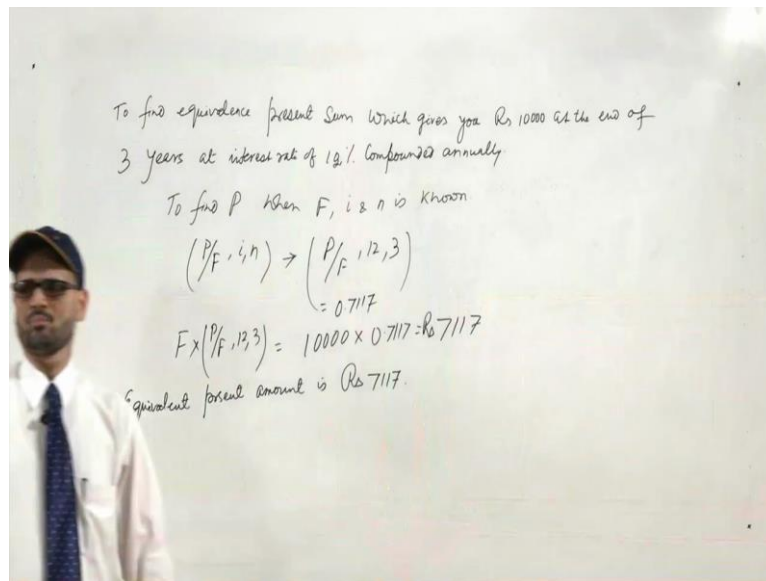 To find equivalence present Sum which gives you Rs 10000 at the end of
3 years at interest rate of 12%. Compounded annually.
To find P when F, i & n is known.
(P/F, i, n) → (P/F, 12, 3)
= 0.7117
F×(P/F, 12, 3) = 10000 × 0.7117 = Rs 7117
Equivalent present amount is Rs 7117.